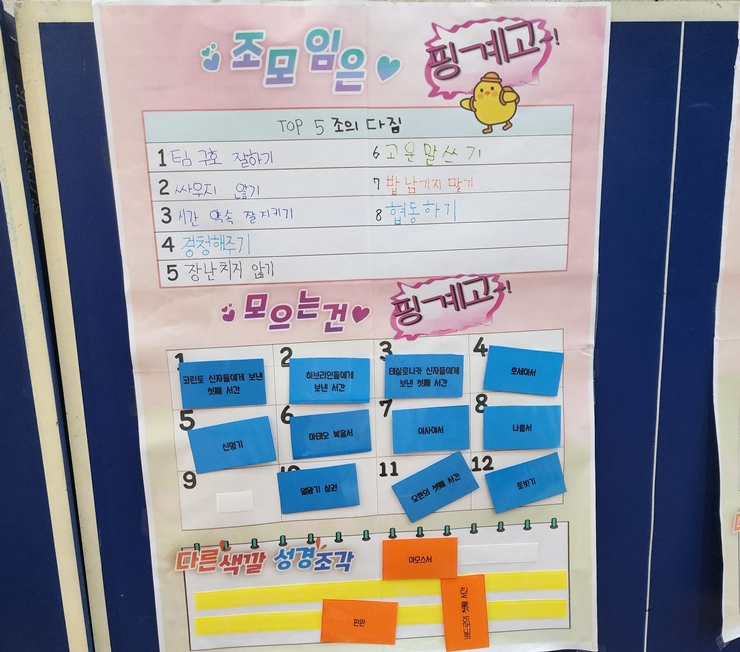 조모임은 핑계고!
TOP 5 조의 다짐
1 팀 구호 잘하기
6 고운 말 쓰기
2 싸우지 않기
7 밥 남기지 말기
3 시간 약속 잘 지키기
8 협동하기
4 경청해주기
5 장난치지 않기
모으는건 핑계고!
1
코린토 신자들에게 보낸
첫째 서간
2
히브리인들에게
보낸 서간
3
테살로니카 신자들에게
보낸 첫째 서간
4
호세아서
5
신명기
6
마태오 복음서
7
이사야서
8
나훔서
9
10
열왕기 상권
11
요한의 첫째 서간
12
토빗기
다른색깔 성경조각
아모스서
판관